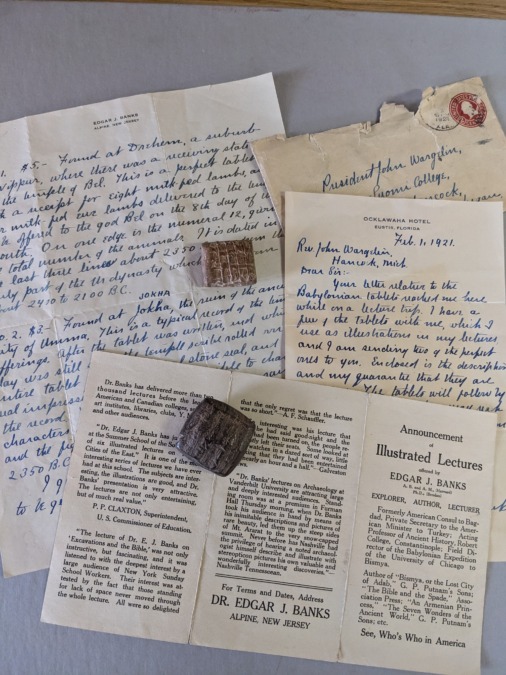 EDGAR J. BANKS
ALPINE, NEW JERSEY
1. $5.- Found at Drehem, a suburb
Nippur, where there was a receiving stati
the temple of Bel. This is a perfect tablet
a receipt for eight milk fed lambs, a
milk fed ewe lambs delivered to the tem
be offered to the god Bel on the 8th day of t
month. On one edge is the numeral 12, givin
total number of the animals. It is dated in
last three lines about 2350
ly part of the Ur dynasty which
2400 to 2100 B.C.
JOKHA
o. 2. $3.- Found at Jokha, the ruin of the ance
ity of Umma. This is a typical record of the tem
offerings. After the tablet was written, and whil
clay was still
the temple scribe rolled over
entire tablet
stone seal, and
ual impress
the record
to cha
character
and the fi
2350 B.C.
President John Wargelin,
Suomi College,
Hancock,
OCKLAWAHA HOTEL
EUSTIS, FLORIDA
Feb. 1, 1921.
Rev John Wargelin,
Hancock, Mich
Dear Sir:-
Your letter relative to the
Babylonian tablets reached me here
while on a lecture trip. I have a
few of the tablets with me, which I
use as illustrations in my lectures
and I am sending two of the perfect
ones to you. Enclosed is the descripti
and my guarantee that they are
The tablets will follow by
Dr. Banks has delivered more than
thousand lectures before the
American and Canadian colleges,
art institutes, libraries, clubs, Y.
and other audiences.
"Dr. Edgar J. Banks has
at the Summer School of the So
of six illustrated lectures on
Cities of the East." It is one of the
interesting series of lectures we have ever
had at this school. The subjects are inter-
esting, the illustrations are good, and Dr.
Banks' presentation is very attractive.
The lectures are not only entertaining,
but of much real value."
P. P. CLAXTON, Superintendent,
U. S. Commissioner of Education.
"The lecture of Dr. E. J. Banks on
'Excavations and the Bible,' was not only
instructive, but fascinating, and it was
listened to with the deepest interest by a
large audience of New York Sunday
School Workers. Their interest was at-
tested by the fact that those standing
for lack of space never moved through
the whole lecture. All were so delighted
that the only regret was that the lecture
was so short."—A. F. Schauffler.
interesting was his lecture, that
he had said good-night and the
had been turned on, the people re-
ly left their seats. Some looked at
watches in a dazed sort of way, little
that they had been entertained
early an hour and a half."—Galveston
"Dr. Banks' lectures on Archaeology at
Vanderbilt University are attracting large
and deeply interested audiences. Stand-
ing room was at a premium in Furman
Hall Thursday morning, when Dr. Banks
took his audience in hand by means of
inimitable descriptions and pictures of
rare beauty, led them up the steep sides
of Mt. Ararat to the very snow-capped
summit. Never before has Nashville had
the privilege of hearing a noted archaeol-
ogist himself describe and illustrate with
stereopticon pictures his own valuable and
wonderfully interesting discoveries."—
Nashville Tennesseean.
For Terms and Dates, Address
DR. EDGAR J. BANKS
ALPINE, NEW JERSEY
Announcement
of
Illustrated Lectures
offered by
EDGAR J. BANKS
EXPLORER, AUTHOR, LECTURER
Formerly American Consul to Bag-
dad, Private Secretary to the Amer-
ican Minister to Turkey; Acting
Professor of Ancient History, Robert
College, Constantinople; Field Di-
rector of the Babylonian Expedition
of the University of Chicago to
Bismya.
Author of "Bismya, or the Lost City
of Adab," G. P. Putnam's Sons;
"The Bible and the Spade," Asso-
ciation Press; "An Armenian Prin-
cess," "The Seven Wonders of the
Ancient World," G. P. Putnam's
Sons; etc.
See, Who's Who in America